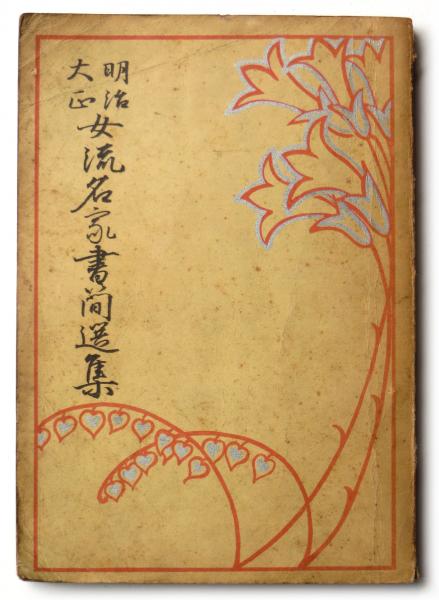 明治
大正
女流名家書簡選集